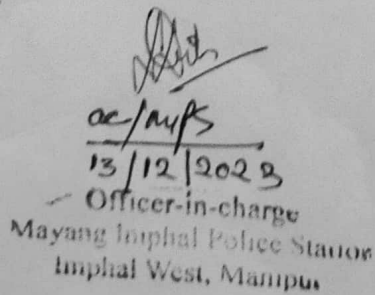 OC/MIPS
13/12/2023
Officer-in-charge
Mayang Imphal Police Station
Imphal West, Manipur